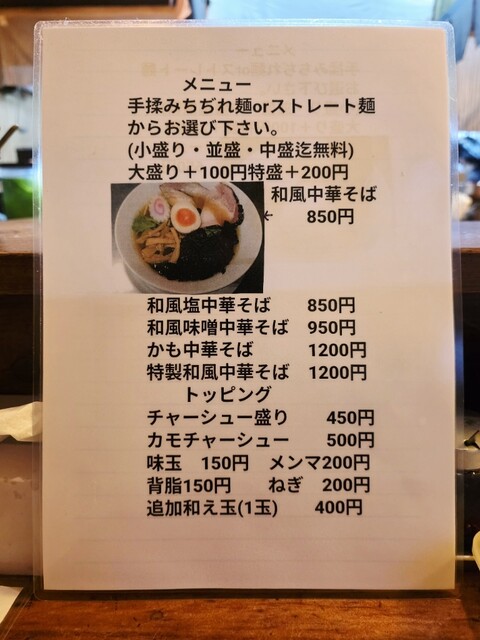 メニュー
手揉みちぢれ麺orストレート麺
からお選び下さい。
(小盛り・並盛・中盛迄無料)
大盛り＋100円特盛＋200円
和風中華そば
← 850円
和風塩中華そば 850円
和風味噌中華そば 950円
かも中華そば 1200円
特製和風中華そば 1200円
トッピング
チャーシュー盛り 450円
カモチャーシュー 500円
味玉 150円 メンマ200円
背脂150円 ねぎ 200円
追加和え玉(1玉) 400円